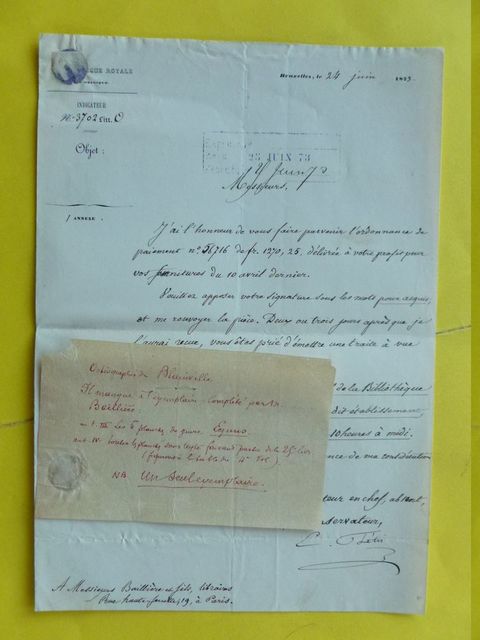 QUE ROYALE
Bruxelles, le 24 juin 1873.
INDICATEUR
N° 3702
Objet :
25 JUIN 73
Messieurs.
ANNEXE
J'ai l'honneur de vous faire parvenir l'ordonnance de
paiement n° 58,716 de fr. 1270,25, délivrée à votre profit pour
vos fournitures du 10 avril dernier.
Veuillez apposer votre signature sous les mots pour acquit,
et me renvoyer la pièce. Deux ou trois jours après que je
l'aurai reçue, vous êtes prié d'émettre une traite à vue
de la Bibliothèque
dit établissement,
10 heures à midi.
ance de ma considération
teur en chef, absent,
servateur,
Ostéographie de Blainville
Il manque à l'exemplaire complété par M
Baillière:
Les planches du genre Equus
(
NB. Un seul exemplaire.
A Messieurs Baillière et fils, libraires
Rue hautefeuille, 19, à Paris.